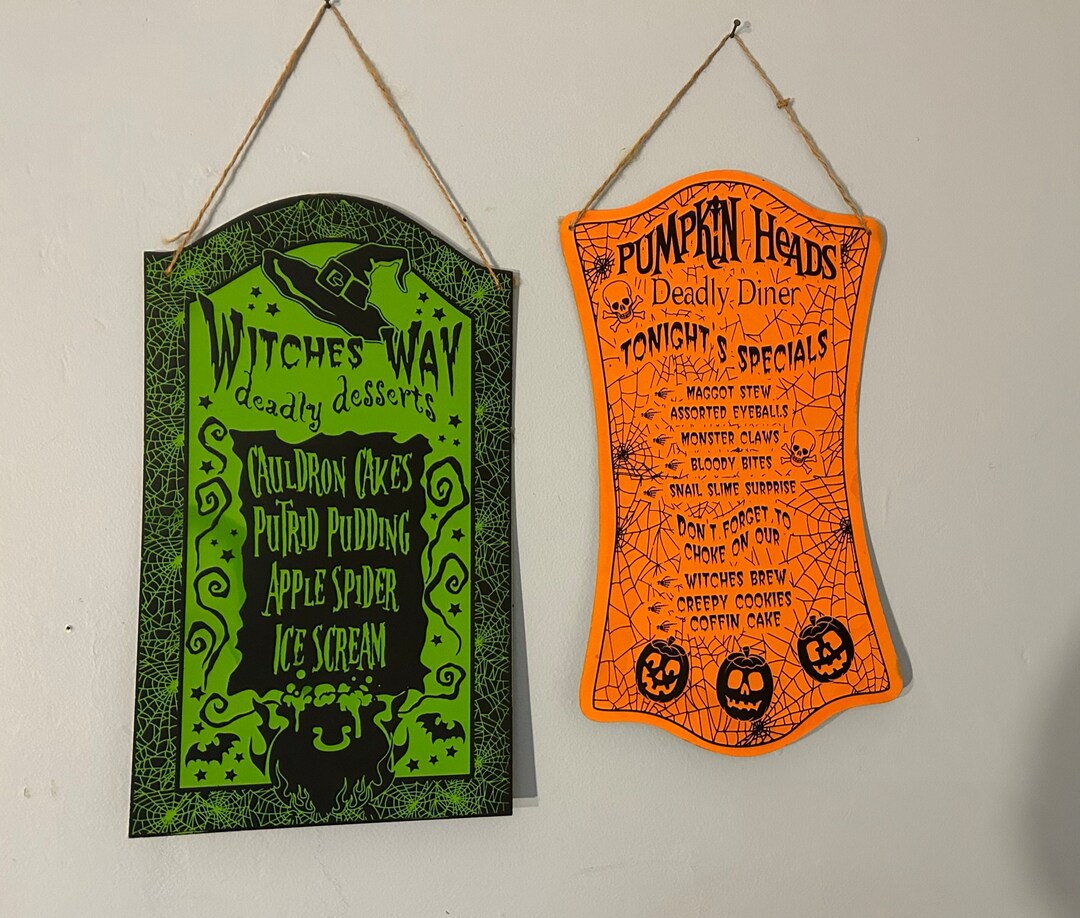 WITCHES WAY
deadly desserts
CAULDRON CAKES
PUTRID PUDDING
APPLE SPIDER
ICE SCREAM
PUMPKIN HEADS
Deadly Diner
TONIGHT'S SPECIALS
MAGGOT STEW
ASSORTED EYEBALLS
MONSTER CLAWS
BLOODY BITES
SNAIL SLIME SURPRISE
DON'T FORGET TO
CHOKE ON OUR
WITCHES BREW
CREEPY COOKIES
COFFIN CAKE